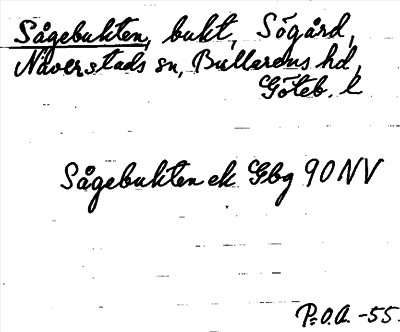 Sågebukten, bukt, Sögård,
Naverstads sn, Bullarens hd,
Göteb. l
Sågebukten ek Gbg 90 NV
P:O.A. -55.